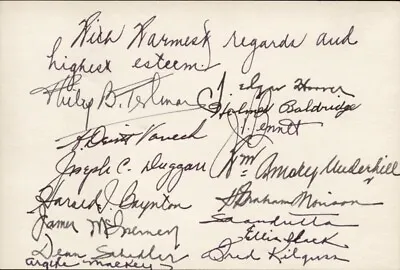 With Warmest regards and
highest esteem
Philip B. Perlman
J. Edgar Hoover
Holmes Baldridge
A. Devitt Vanech
J.
Joseph C. Duggan
Wm Amory Underhill
Harold I. Baynton
Graham Morison
James McInerney
Ellis Slack
Dean Schedler
Argyle Mackey